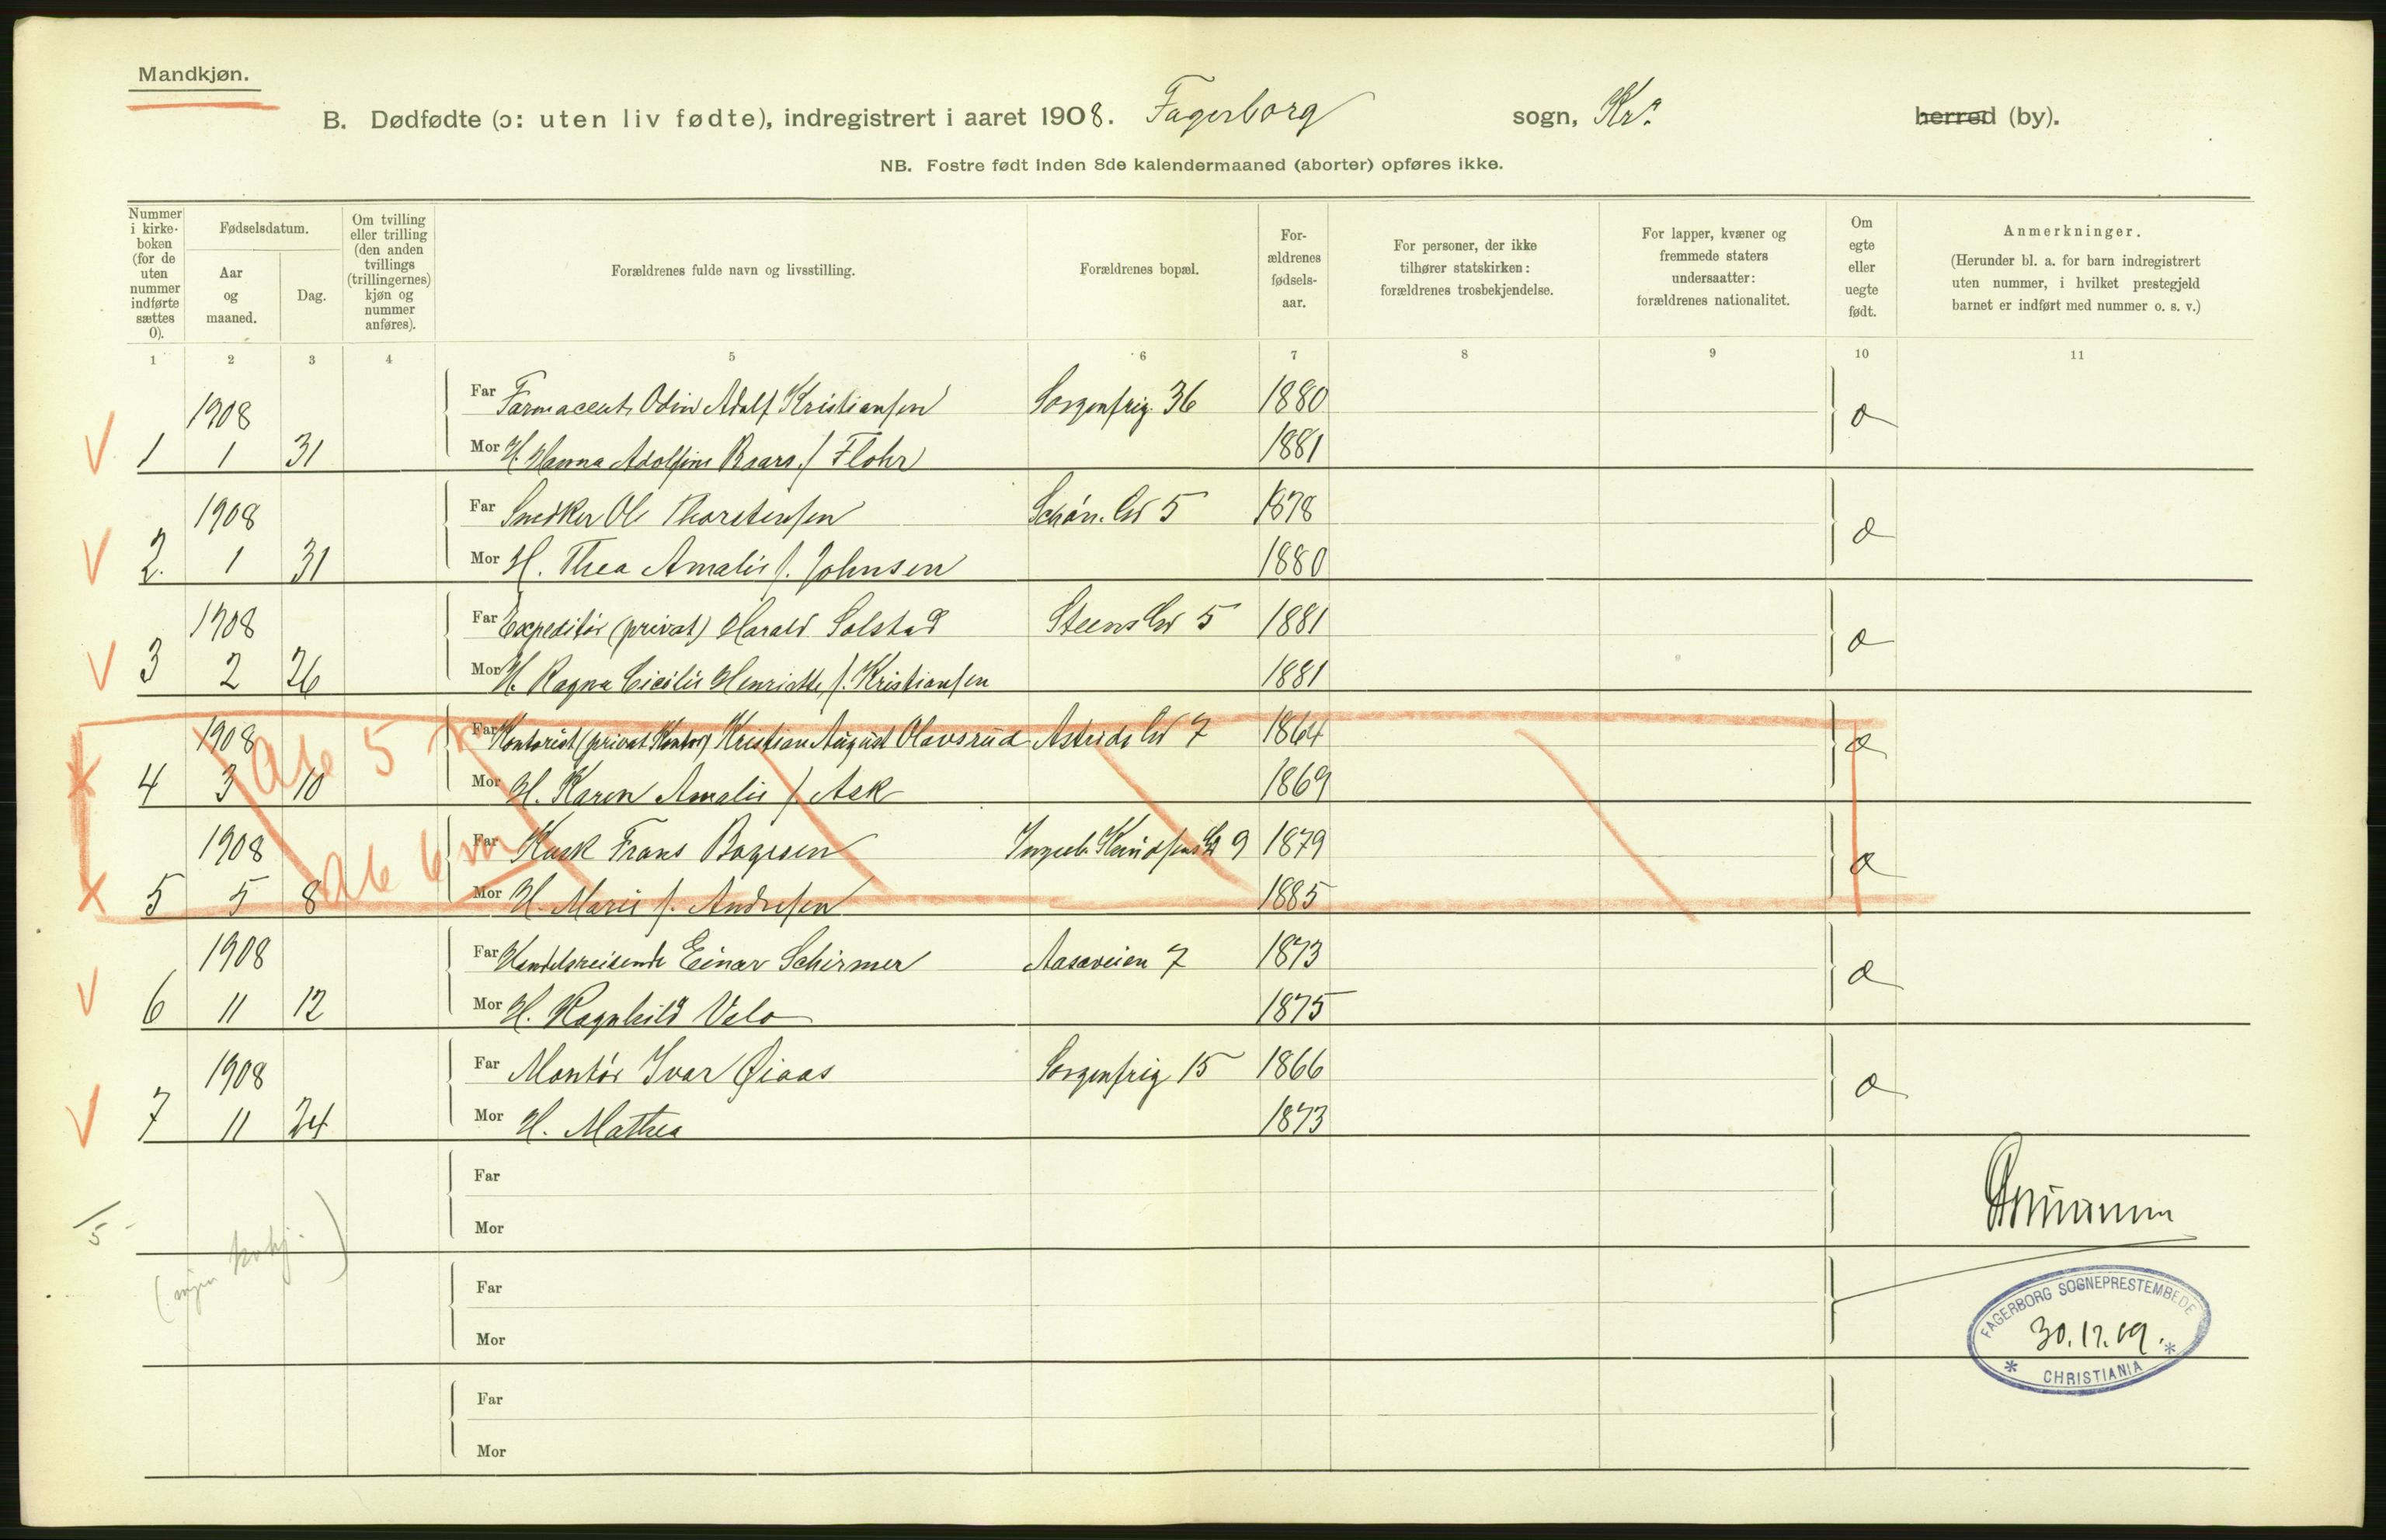 Mandkjøn.
B. Dødfødte (ɔ: uten liv fødte), indregistrert i aaret 1908. Fagerborg sogn, Kr.a herred (by).
NB. Fostre født inden 8de kalendermaaned (aborter) opføres ikke.
Nummer i kirke-boken (for de uten nummer indførte sættes 0).
Fødselsdatum.
Aar og maaned.
Dag.
Om tvilling eller trilling (den anden tvillings (trillingernes) kjøn og nummer anføres).
Forældrenes fulde navn og livsstilling.
Forældrenes bopæl.
For-ældrenes fødsels-aar.
For personer, der ikke tilhører statskirken: forældrenes trosbekjendelse.
For lapper, kvæner og fremmede staters undersaatter: forældrenes nationalitet.
Om egte eller uegte født.
Anmerkninger.
(Herunder bl. a. for barn indregistrert uten nummer, i hvilket prestegjeld barnet er indført med nummer o. s. v.)
1 2 3 4 5 6 7 8 9 10 11
1908 Far Farmaceut Odin Adolf Kristiansen Sorgenfrig. 36 1880
V 1 1 31 Mor H. Hanna Adolfine f. Flohr 1881
1908 Far Snedker Ole Thorstensen Schøn. Gd 5 1878
V 2. 1 31 Mor H. Thea Amalie f. Johnsen 1880
1908 Far Expeditør (privat) Harald Solstad Steens Gd 5 1881
V 3 2 26 Mor H. Ragna Cicilie Henriette f. Kristiansen 1881
1908 Far Kontorist (privat Kontor) Kristian August Olavsrud Astrids Gd 7 1864
X 4 3 10 Mor H. Karen Amalie f. Ask 1869
1908 Far Kusk Frans Bogesen Ingeb. Knudsens Gd 9 1879
X 5 5 8 Mor H. Marie f. Andresen 1885
1908 Far Handelsreisende Einar Schirmer Aasaveien 7 1873
V 6 11 12 Mor H. Ragnhild Velo 1875
1908 Far Montør Ivar Øiaas Sorgenfrig 15 1866
V 7 11 24 Mor H. Mathea 1873
Far
Mor
Far
Mor
FAGERBORG SOGNEPRESTEMBEDE
30.12.09.
* CHRISTIANIA *
Far
Mor